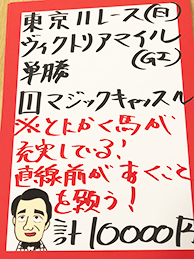 東京11レース(日)
ヴィクトリアマイル
(GI)
単勝
1 マジックキャッスル
※とにかく馬が
充実している!
直線前があくこと
を願う!
計10000円